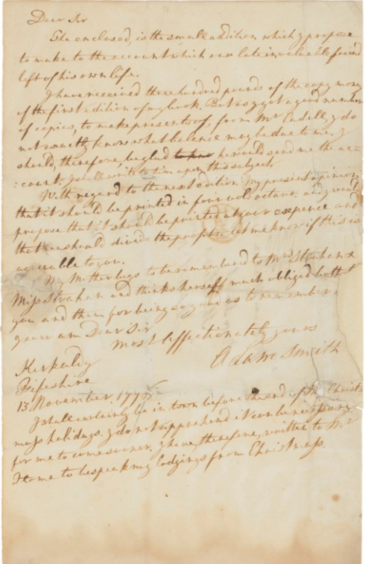 Dear Sir
The enclosed, is the small addition which I propose
to make to the account which our late invaluable friend
left of his own life.
I have received three hundred pounds of the copy money
of the first edition of my book. But as I got a good number
of copies, to make presents of, from Mr Cadell, I do
not exactly know what balance may be due to me. I
should, therefore, be glad he would send me the ac-
:count. I shall write to him upon this subject.
With regard to the next edition, my present opinion is
that it should be printed in four vol. octavo, and I would
propose that it should be printed at your expence, and
that we should divide the profits. Let me know if this is
agreable to you.
My Mother begs to be remembered to Mrs Strahan &
Miss Strahan and thinks herself much obliged both to
you and them for being so good as to remember
I ever am Dear Sir
Most Affectionately yours
Adam Smith
Kirkaldy
Fifeshire
13 November, 1776
I shall certainly be in town before the end of the Christ-
mass holidays. I do not apprehend it can be necessary
for me to come sooner. I have therefore, written to Mr
Home to bespeak my lodgings from Christmass.